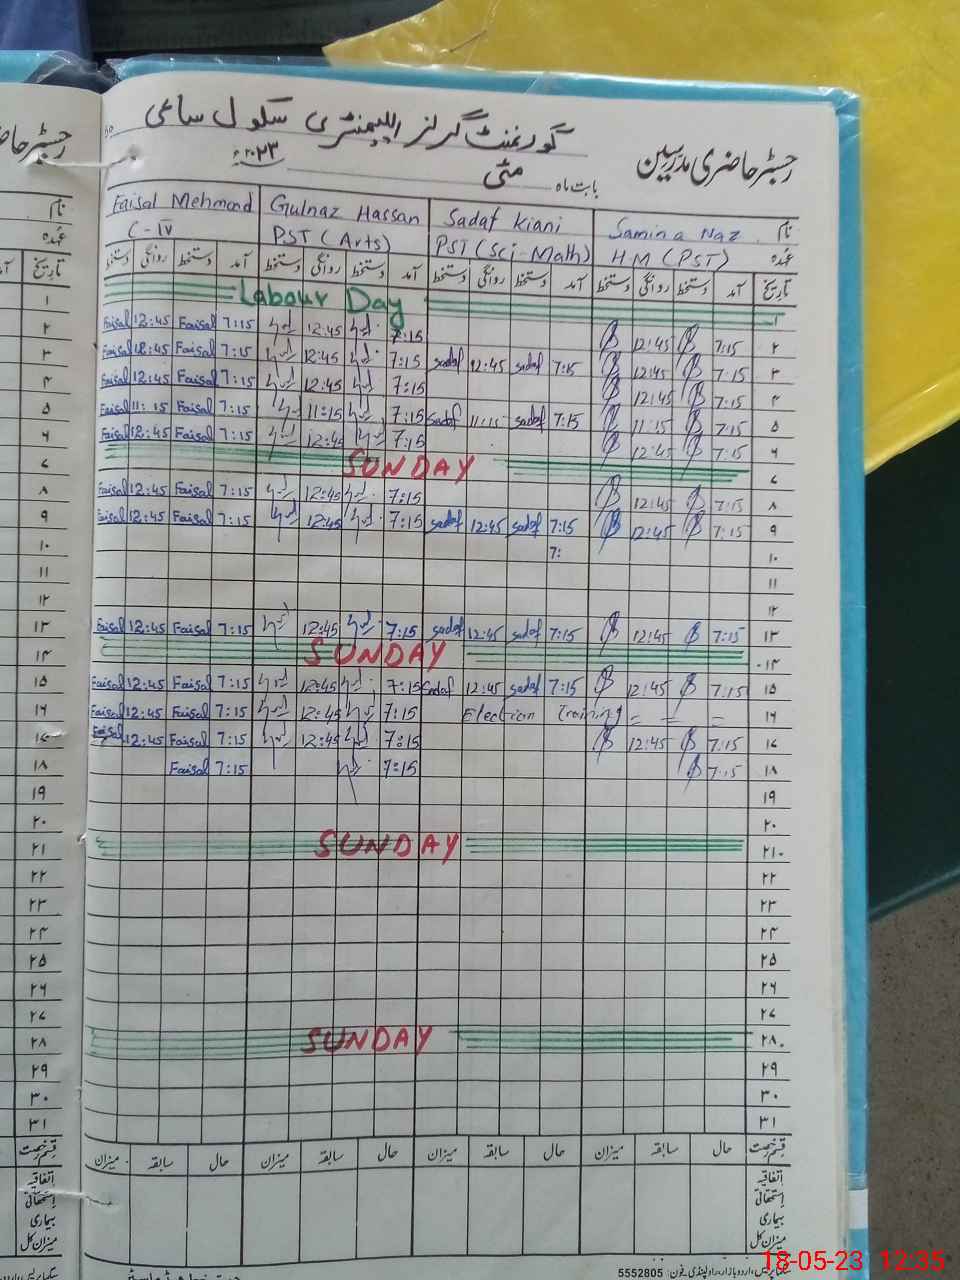 گورنمنٹ گرلز ایلیمنٹری سکول ساعی
رجسٹر حاضری مدرسین
بابت ماہ مئی ۲۰۲۳ء
Faisal Mehmood Gulnaz Hassan Sadaf Kiani Samina Naz نام
C-IV PST (Arts) PST (Sci-Math) HM (PST) عہدہ
دستخط روانگی دستخط آمد دستخط روانگی دستخط آمد دستخط روانگی دستخط آمد دستخط روانگی دستخط آمد تاریخ
Labour Day ۱
Faisal 12:45 Faisal 7:15 12:45 7:15 12:45 7:15 ۲
Faisal 12:45 Faisal 7:15 12:45 7:15 sadaf 12:45 sadaf 7:15 12:45 7:15 ۳
Faisal 12:45 Faisal 7:15 12:45 7:15 12:45 7:15 ۴
Faisal 11:15 Faisal 7:15 11:15 7:15 Sadaf 11:15 sadaf 7:15 11:15 7:15 ۵
Faisal 12:45 Faisal 7:15 12:45 7:15 12:45 7:15 ۶
SUNDAY ۷
Faisal 12:45 Faisal 7:15 12:45 7:15 12:45 7:15 ۸
Faisal 12:45 Faisal 7:15 12:45 7:15 sadaf 12:45 sadaf 7:15 12:45 7:15 ۹
7: ۱۰
۱۱
۱۲
Faisal 12:45 Faisal 7:15 12:45 7:15 sadaf 12:45 sadaf 7:15 12:45 7:15 ۱۳
SUNDAY ۱۴
Faisal 12:45 Faisal 7:15 12:45 7:15 Sadaf 12:45 sadaf 7:15 12:45 7:15 ۱۵
Faisal 12:45 Faisal 7:15 12:45 7:15 Election Training ۱۶
Faisal 12:45 Faisal 7:15 12:45 7:15 12:45 7:15 ۱۷
Faisal 7:15 7:15 7:15 ۱۸
۱۹
۲۰
SUNDAY ۲۱
۲۲
۲۳
۲۴
۲۵
۲۶
۲۷
SUNDAY ۲۸
۲۹
۳۰
۳۱
میزان سابقہ حال میزان سابقہ حال میزان سابقہ حال میزان سابقہ حال قسم رخصت
اتفاقیہ
استحقاقی
بیماری
میزان کل
اردو بازار، راولپنڈی فون: 5552805
18-05-23 12:35